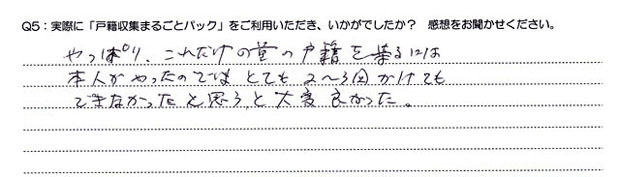 Q5：実際に「戸籍収集まるごとパック」をご利用いただき、いかがでしたか？ 感想をお聞かせください。
やっぱり、これだけの量の戸籍を集るには
本人がやったのではとても2〜3回かけても
できなかったと思うと大変良かった。